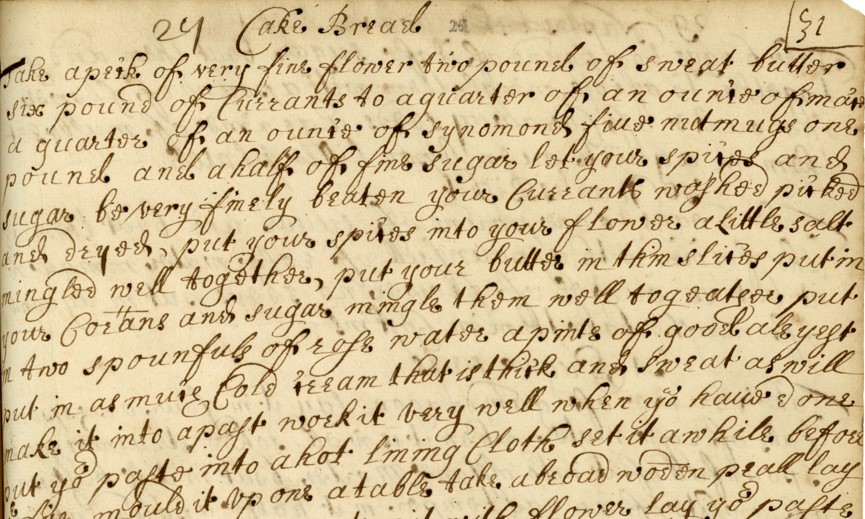 29 Cake Bread 251 31
Take a peck of very fine flower two pound of sweat butter
six pound of Currants to a quarter of an ounce of mace
a quarter of an ounce of synomond five nutmugs one
pound and a half of fine sugar let your spices and
sugar be very finely beaten your Currants washed picked
and dryed, put your spices into your flower a little salt
mingled well together, put your butter in thin slices put in
your Corrans and sugar mingle them well togeather put
in two spounfuls of rose water a pinte of good ale yest
put in as much Cold cream that is thick and sweat as will
make it into a past work it very well when yo have done
put yor paste into a hot lining Cloth set it a while before
mould it vp one a table take a broad woden peall lay
flower lay yor paste